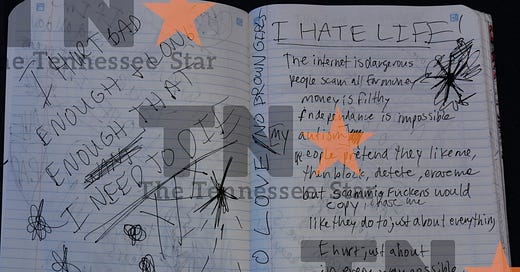 I HURT BAD
ENOUGH LONG
ENOUGH THAT
I NEED TO DIE
TN
The Tennessee Star
NO BROWN GIRLS
I HATE LIFE!
The internet is dangerous
people scam all for money
money is filthy
Independance is impossible
my autism
people pretend they like me,
then block, delete, erase me
but scamming fuckers would
copy, erase me
like they do to just about everything
I hurt just about
in every way possible
TN
The Tennessee Star
TN